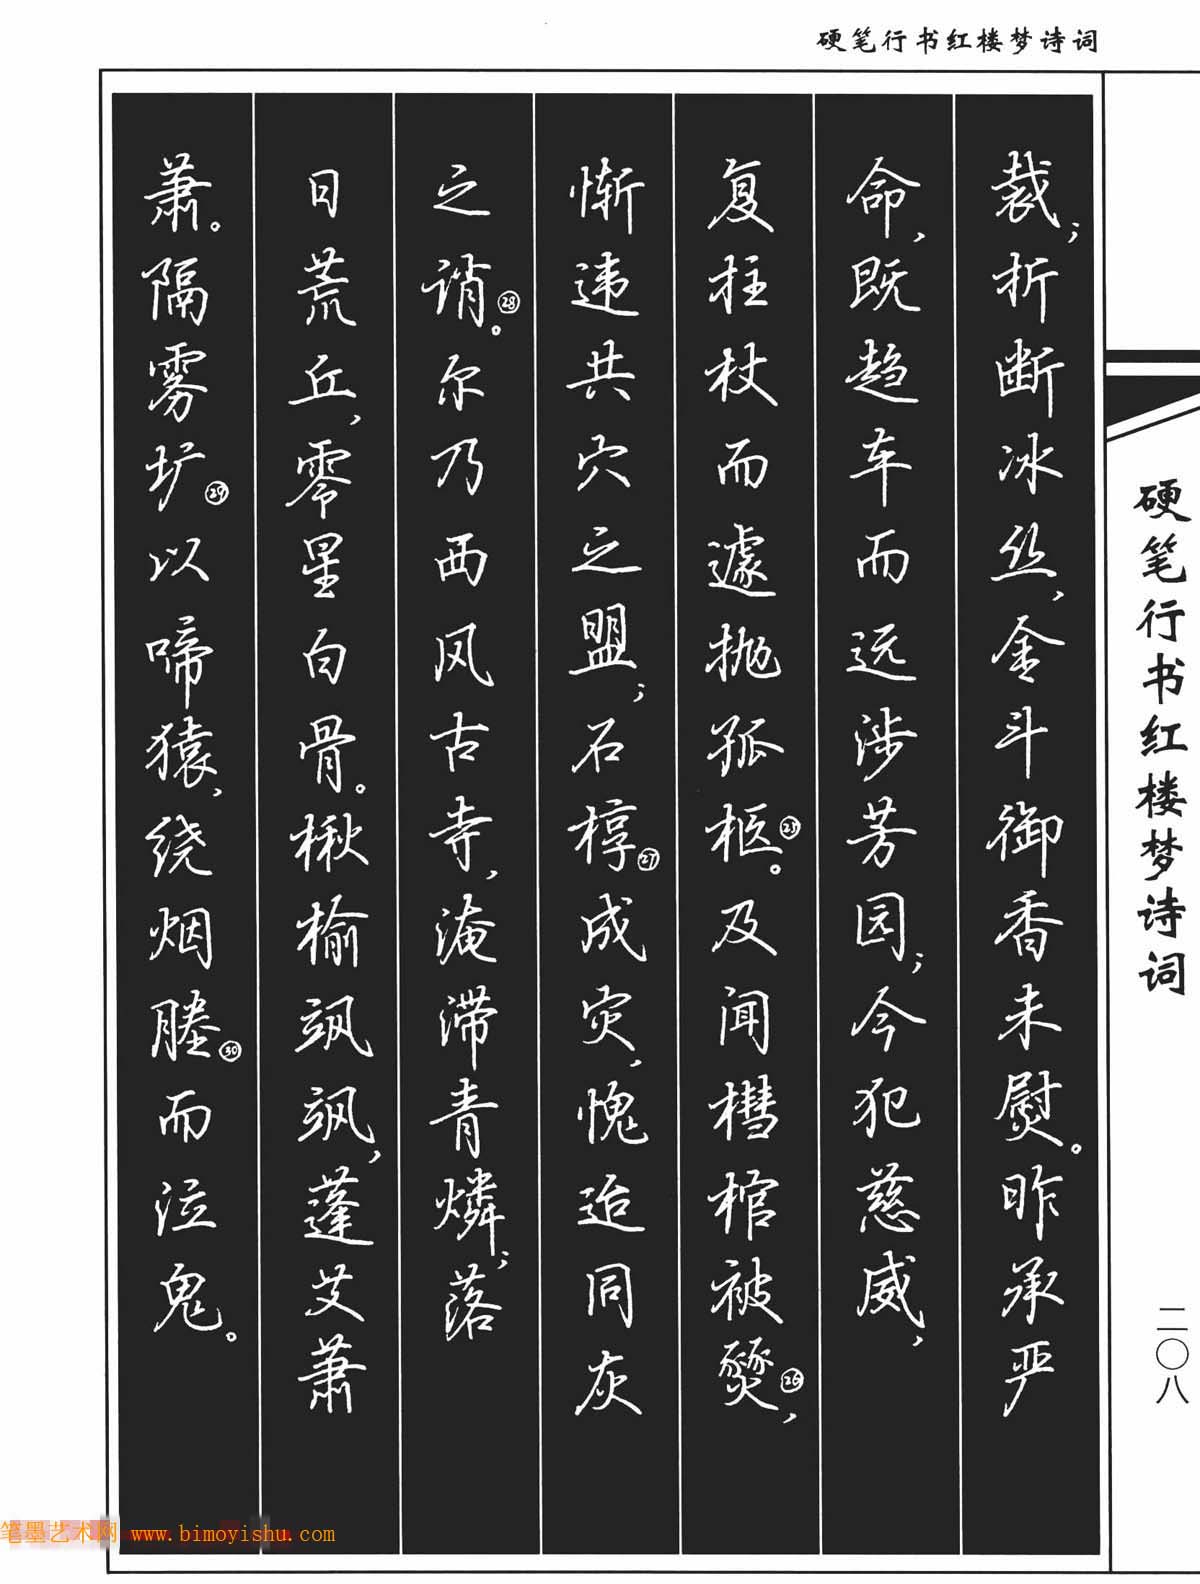 硬笔行书红楼梦诗词
裁；折断冰丝，金斗御香未熨。昨承严
命，既趋车而远涉芳园；今犯慈威，
复拄杖而遽抛孤柩㉕。及闻槥棺被燹㉖，
惭违共穴之盟；石椁㉗成灾，愧迨同灰
之诮㉘。尔乃西风古寺，淹滞青燐；落
日荒丘，零星白骨。楸榆飒飒，蓬艾萧
萧。隔雾圹㉙以啼猿，绕烟塍㉚而泣鬼。
硬笔行书红楼梦诗词
二〇八
笔墨艺术网 www.bimoyishu.com